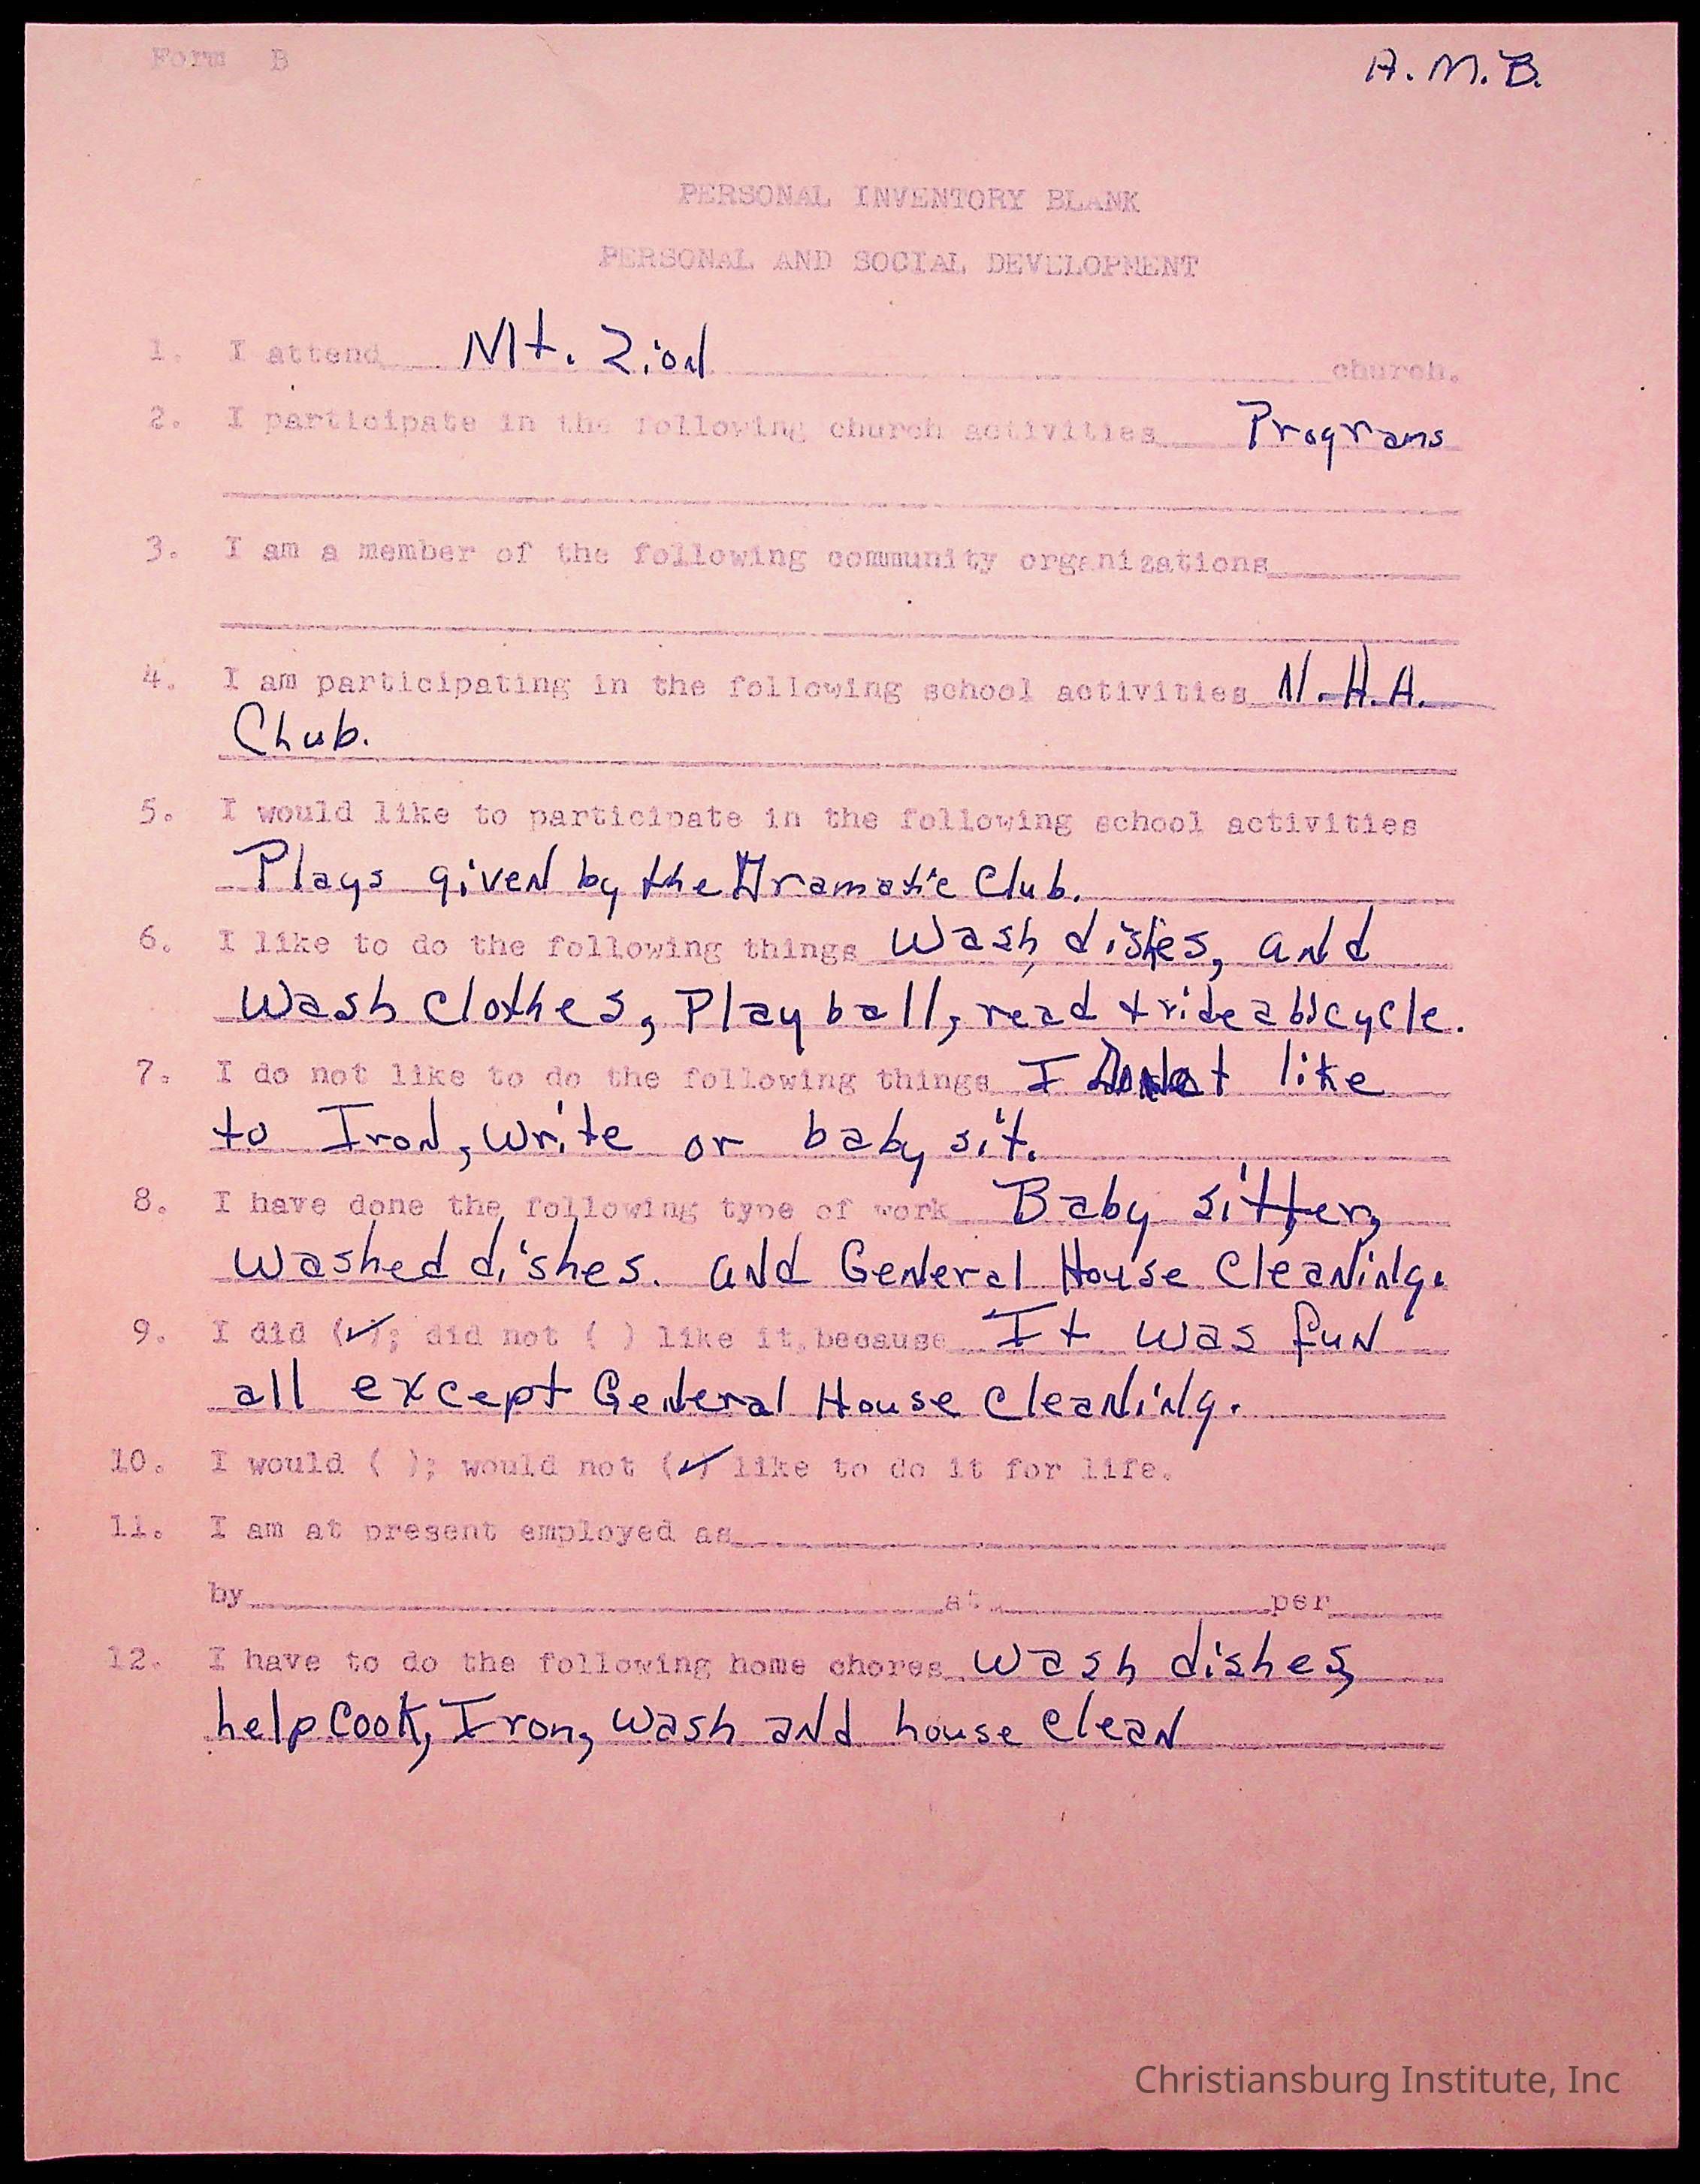 Form B
A. M. B.
PERSONAL INVENTORY BLANK
PERSONAL AND SOCIAL DEVELOPMENT
1. I attend Mt. Zion church.
2. I participate in the following church activities Programs
3. I am a member of the following community organizations
4. I am participating in the following school activities N. H. A.
Chub.
5. I would like to participate in the following school activities
Plays given by the Dramatic Club.
6. I like to do the following things Wash dishes, and
Wash Clothes, Play ball, read + ride a bicycle.
7. I do not like to do the following things I Do not like
to Iron, Write or baby sit.
8. I have done the following type of work Baby sitter,
Washed dishes. and General House Cleaning.
9. I did (✓); did not ( ) like it, because It was fun
all except General House Cleaning.
10. I would ( ); would not (✓) like to do it for life.
11. I am at present employed as
by at per
12. I have to do the following home chores Wash dishes,
help Cook, Iron, Wash and house Clean
Christiansburg Institute, Inc